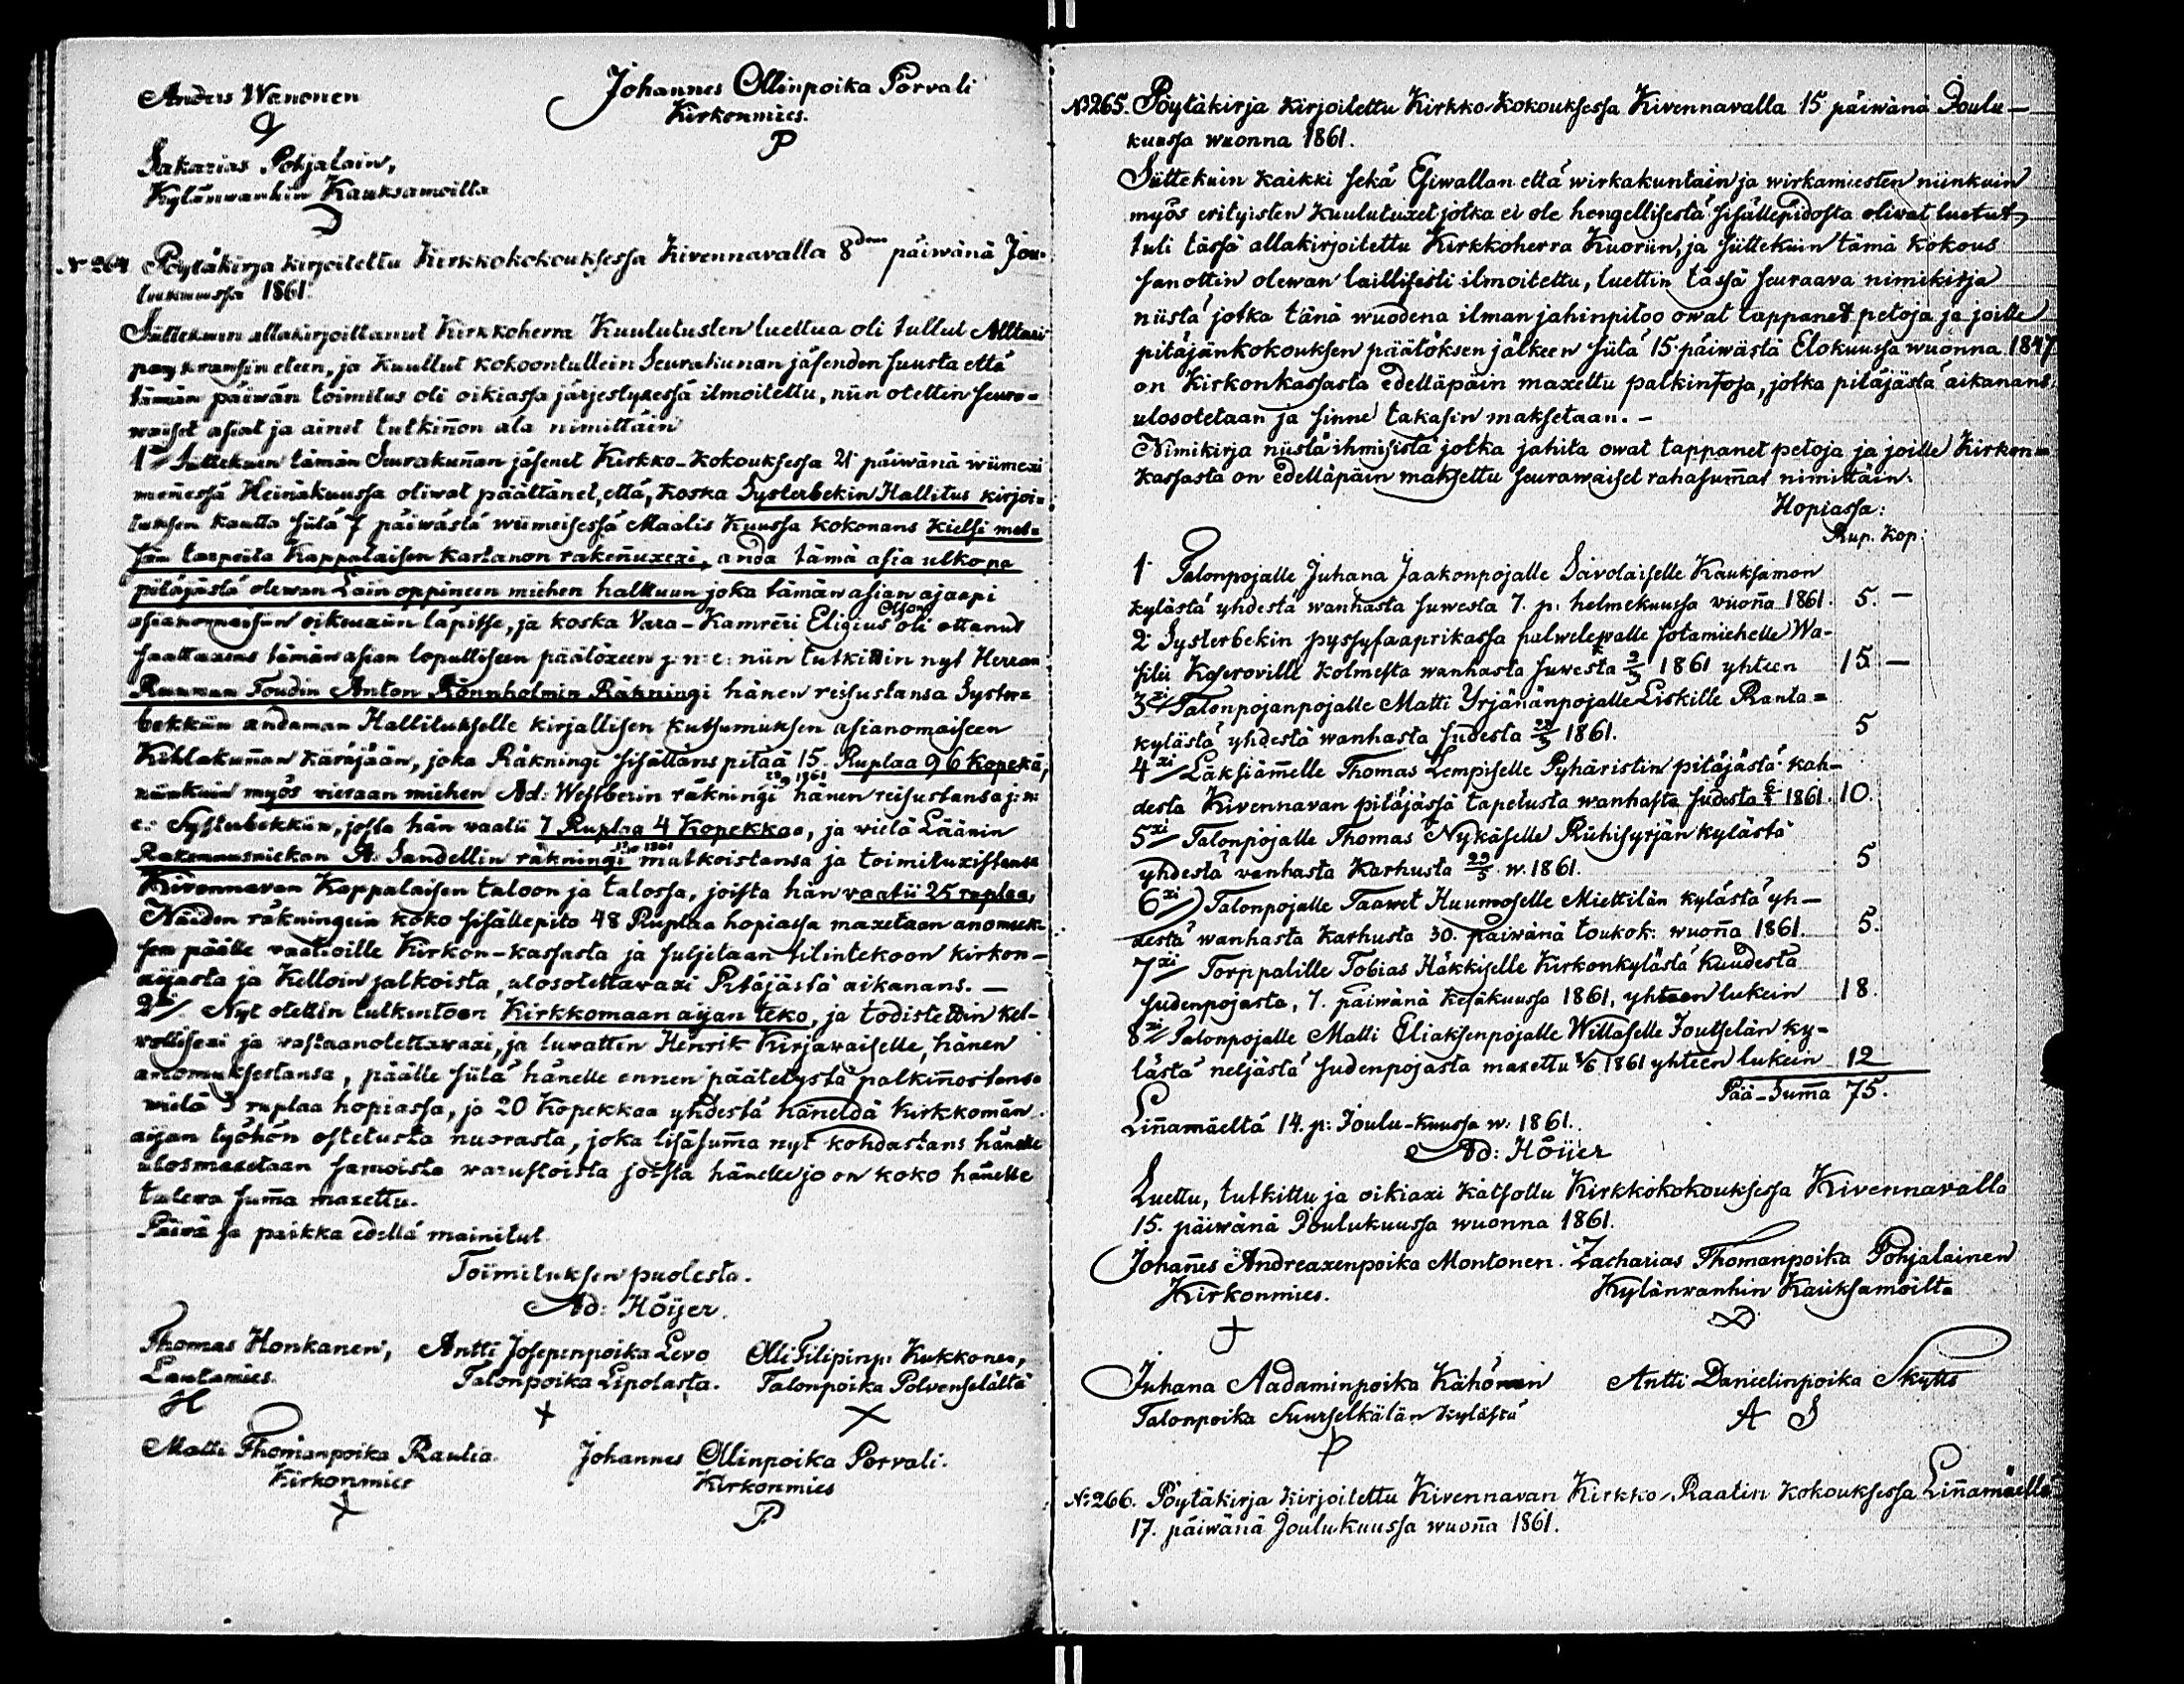 Anders Wanonen
Johannes Ollinpoika Porvali
Kirkonmies.
P
Sakarias Pohjalain,
Kylänwanhin Kauksamoilta
No 264 Pöytäkirja kirjoitettu Kirkkokokouksessa Kivennavalla 8 päiwänä Jou-
lukuussa 1861.
Sittekuin allakirjoittanut Kirkkoherra Kuulutusten luettua oli tullut Alttari
eteen, ja Kuullut kokoontullein Seurakunan jäsenden suusta että
tämän päiwän toimitus oli oikiassa järjestyxessä ilmoitettu, niin otettin seura-
waiset asiat ja ainet tutkinnon ala nimittäin
1 Sittekuin tämän Seurakunnan jäsenet Kirkko-kokouksessa 21 päiwänä wiimexi
menessä Heinäkuussa oliwat päättänet, että, koska Systerbekin Hallitus kirjoi-
tuksen kautta siitä 7 päiwästä wiimeisessä Maalis Kuussa kokonans kielsi met-
sän tarpeita Kappalaisen kartanon rakennuxexi, anda tämä asia ulkopa
pitäjästä olewan Lain oppineen miehen haltuun joka tämän asian ajaapi
asianomaisiin oikeuxiin läpitse, ja koska Vara-Kamreri Eligius Olsoni oli ottanut
saattaxens tämän asian lopulliseen päätöxeen j: n: e: niin tutkittin nyt Herran
Ruunun Foudin Anton Rönnholmin Räkningi hänen reisustansa Syster-
bekkiin andaman Hallitukselle kirjallisen kutsumuksen asianomaiseen
Kihlakunnan Käräjään, joka Räkningi sisällans pitää 15 Ruplaa 96 kopekä,
niinkuin myös vieraan miehen Ad: Westberin räkningi hänen reisustansa j: n:
e: Systerbekkiin, josta hän vaatii 7 Ruplaa 4 Kopekkaa, ja vielä Läänin
Rakennusniekan A. Sandellin räkningi matkoistansa ja toimituxistansa
Kivennavan Kappalaisen taloon ja talossa, joista hän vaatii 25 ruplaa,
Näiden räkningein koko sisällepito 48 Ruplaa hopiassa maxetaan anomuk-
sen päälle vaatioille Kirkon-kassasta ja suljetaan tilintekoon kirkon-
aijasta ja Kelloin jalkoista, ulosotettavaxi Pitäjästä aikanans. —
2 Nyt otettin tutkintoon Kirkkomaan aijan teko, ja todistettin kel-
vollisexi ja vastaanotettavaxi, ja luvattin Henrik Kirjavaiselle, hänen
anomuksestansa, päälle siitä hänelle ennen päätetystä palkinnostansa
wielä 3 ruplaa hopiassa, ja 20 Kopekkaa yhdestä häneldä Kirkkomän
aijan työhön ostetusta nuorasta, joka lisäsumma nyt kohdastans hänelle
ulosmaxetaan samoista varustoista joista hänelle jo on koko hänelle
tulewa summa maxettu.
Päiwä ja paikka edellä mainitut
Toimituksen puolesta.
Ad: Höijer.
Thomas Honkanen,
Lautamies.
H
Antti Josepinpoika Levo
Talonpoika Lipolasta.
Olli Filipinp: Kukkonen,
Talonpoika Polvenselältä
Matti Thomanpoika Raulia.
Kirkonmies
Johannes Ollinpoika Porvali.
Kirkonmies
P
No 265. Pöytäkirja kirjoitettu Kirkko-kokouksessa Kivennavalla 15 päiwänä Joulu-
kuussa wuonna 1861.
Sittekuin kaikki sekä Esiwallan että wirkakuntain ja wirkamiesten niinkuin
myös erityisten Kuulutuxet jotka ei ole hengellisestä sisällepidosta oliwat luetut,
tuli tässä allakirjoitettu Kirkkoherra Kuoriin, ja sittekuin tämä kokous
sanottin olewan laillisesti ilmoitettu, luettin tässä seuraava nimikirja
niistä jotka tänä wuodena ilman jahinpitoo owat tappanet petoja ja joille
pitäjänkokouksen päätöksen jälkeen siitä 15 päiwästä Elokuussa wuonna 1847
on Kirkonkassasta edelläpäin maxettu palkintoja, jotka pitäjästä aikanans
ulosotetaan ja sinne takasin maksetaan. —
Nimikirja niistä ihmisistä jotka jahita owat tappanet petoja ja joille Kirkon-
kassasta on edelläpäin maksettu seurawaiset rahasummat nimittäin:
Hopiassa:
Rup. Kop:
1 Talonpojalle Juhana Jaakonpojalle Savolaiselle Kauksamon
kylästä yhdestä wanhasta suwesta 7. p: helmekuussa vuonna 1861. 5. —
2 Systerbekin pyssyfaaprikassa palwelewalle sotamiehelle Wa-
silii Koseroville kolmesta wanhasta suwesta 9/3 1861 yhteen 15 —
3 Talonpojanpojalle Matti Yrjänänpojalle Liskille Ranta-
kylästä yhdestä wanhasta sudesta 23/3 1861. 5
4 Läksiämelle Thomas Lempiselle Pyhäristin pitäjästä kah-
desta Kivennavan pitäjässä tapetusta wanhasta sudesta 6/4 1861. 10.
5 Talonpojalle Thomas Nykäselle Riihisyrjän kylästä
yhdestä vanhasta Karhusta 29/5 w. 1861. 5
6 Talonpojalle Taawet Huumoselle Miettilän kylästä yh-
destä wanhasta karhusta 30. päiwänä toukok: wuonna 1861. 5.
7 Torppalille Tobias Häkkiselle Kirkonkylästä kuudesta
sudenpojasta, 7. päiwänä kesäkuussa 1861, yhteen lukein 18.
8 Talonpojalle Matti Eliaksenpojalle Willaselle Joutselän ky-
lästä neljästä sudenpojasta maxettu 1861 yhteen lukein 12
Pää-Summa 75.
Linnamäeltä 14. p: Joulu-Kuussa w: 1861.
Ad: Höijer
Luettu, tutkittu ja oikiaxi katsottu Kirkkokokouksessa Kivennavalla
15. päiwänä Joulukuussa wuonna 1861.
Johannes Andreaxenpoika Montonen.
Kirkonmies.
Zacharias Thomanpoika Pohjalainen
Kylänvanhin Kauksamoilta
Juhana Aadaminpoika Kähönen
Talonpoika Suurselkälän kylästä
Antti Danielinpoika Skyttä
A S
No 266. Pöytäkirja kirjoitettu Kivennavan Kirkko-Raatin kokouksessa Linnamäellä
17. päiwänä Joulukuussa wuonna 1861.